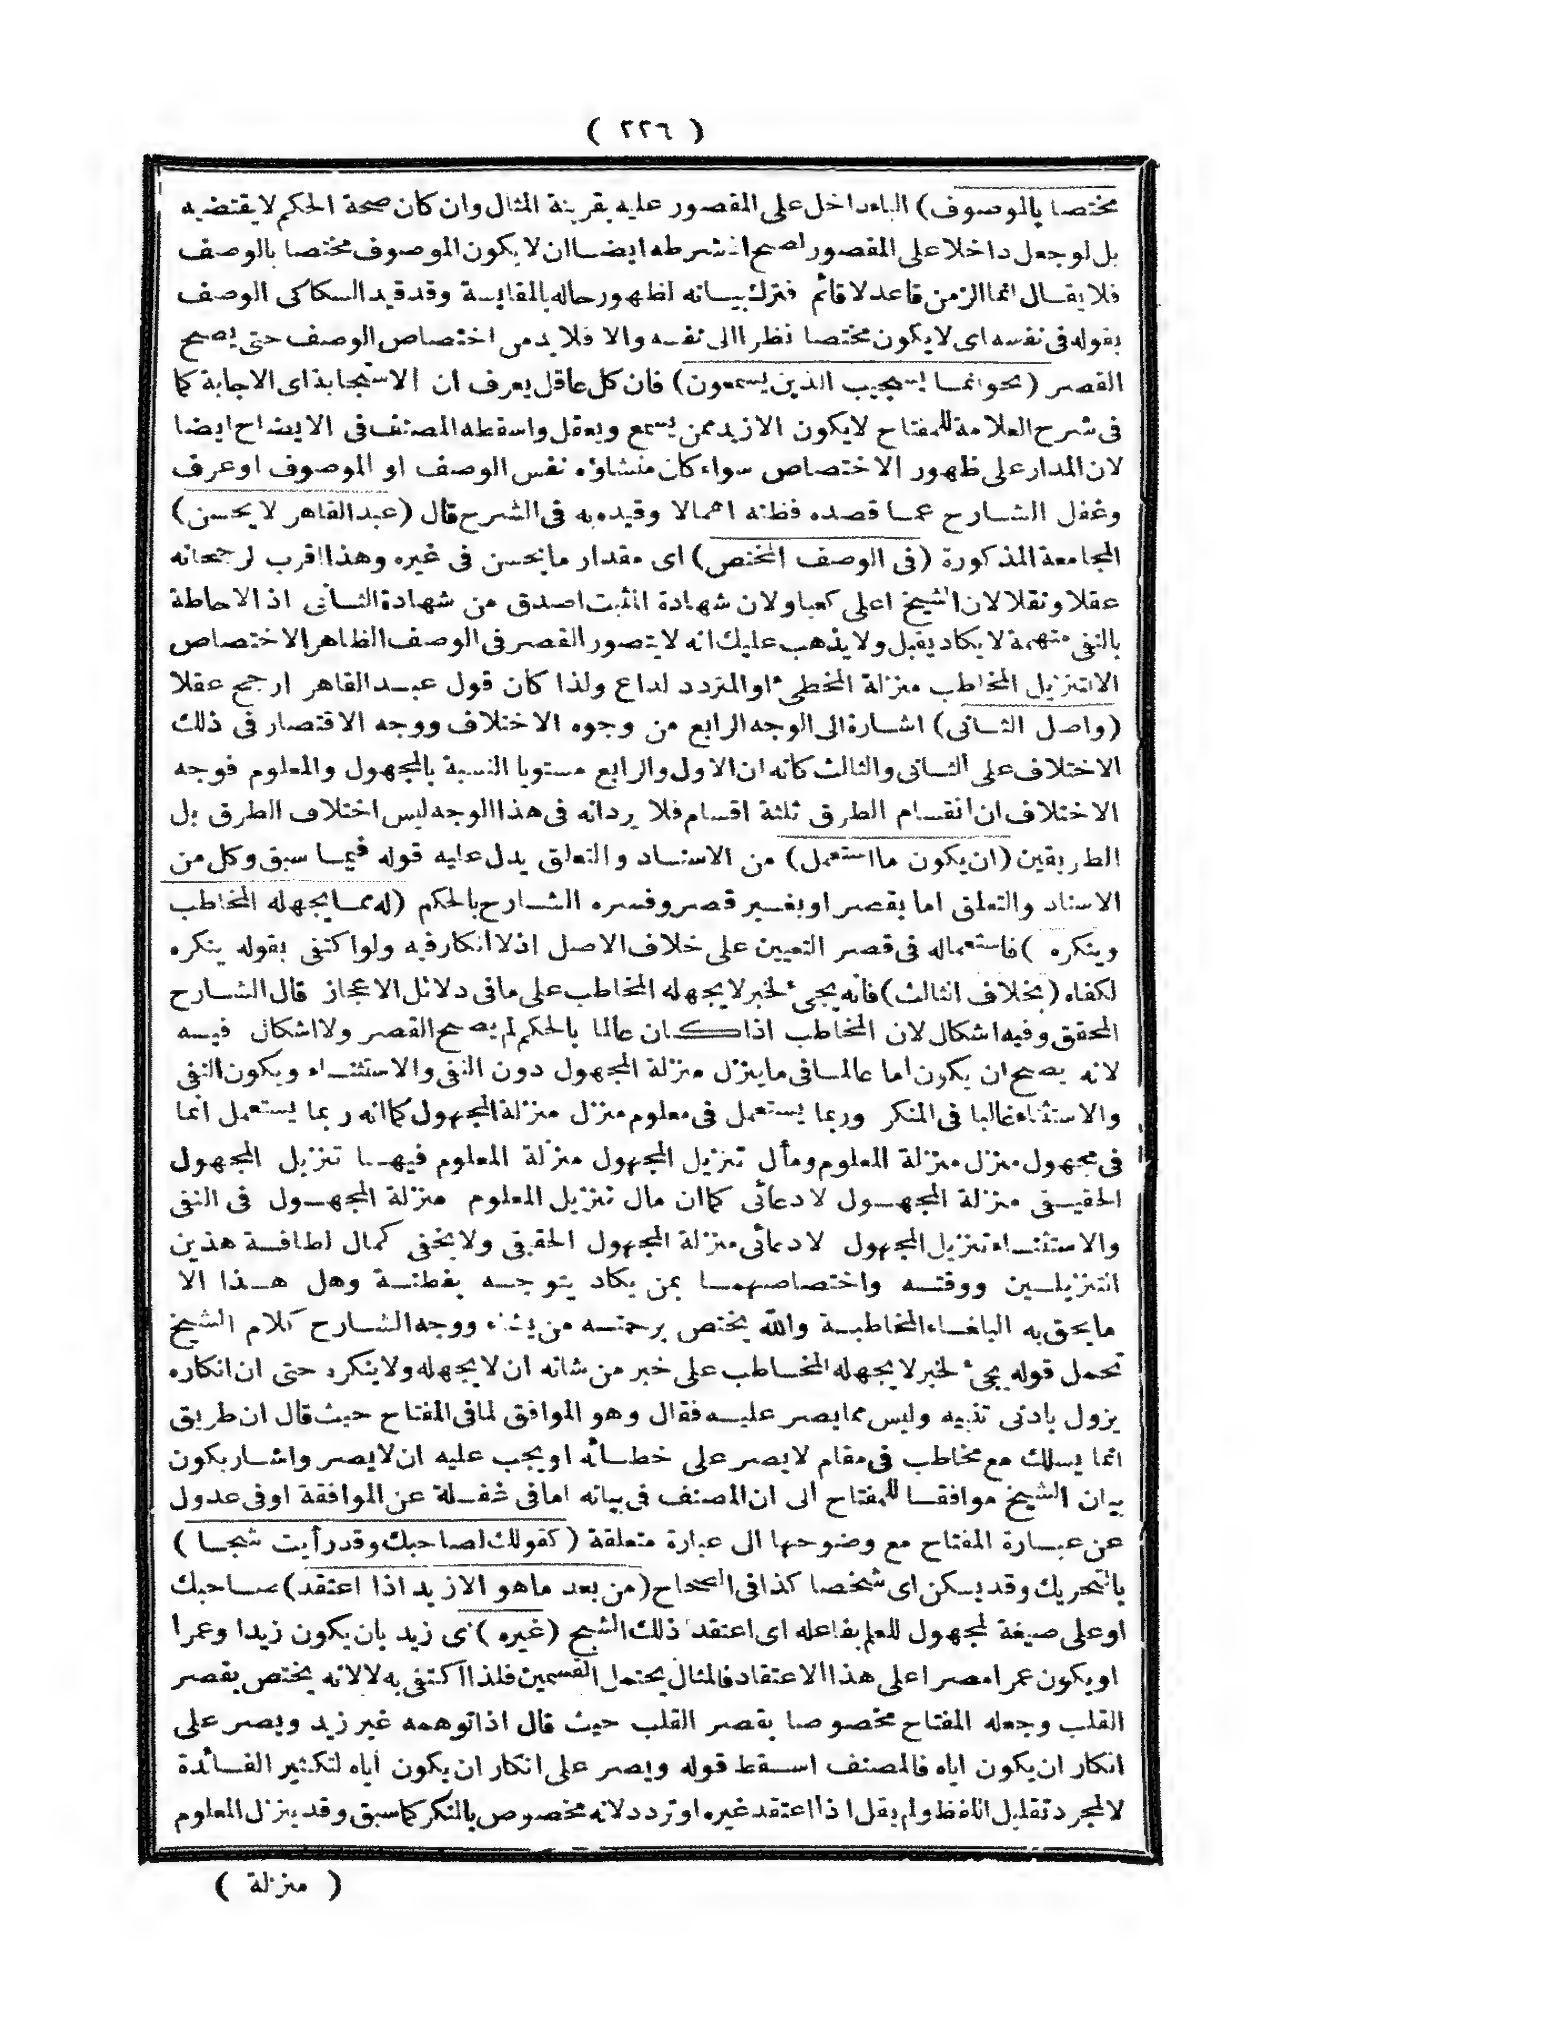 ( ٢٢٦ )
مختصا بالموصوف) الباء داخل على المقصور عليه بقرينة المثال وان كان صحة الحكم لا يقتضيه
بل لو جعل داخلا على المقصور لصح اذ شرطه ايضا ان لا يكون الموصوف مختصا بالوصف
فلا يقال انما الزمن قاعد لا قائم فترك بيانه لظهور حاله بالمقايسة وقد قيد السكاكى الوصف
بقوله فى نفسه اى لا يكون مختصا نظرا الى نفسه والا فلا بد من اختصاص الوصف حتى يصح
القصر (نحو انما يستجيب الذين يسمعون) فان كل عاقل يعرف ان الاستجابة اى الاجابة كما
فى شرح العلامة للمفتاح لا يكون الا زيد ممن يسمع ويعقل واسقطه المصنف فى الايضاح ايضا
لان المدار على ظهور الاختصاص سواء كان منشاؤه نفس الوصف او الموصوف او عرف
وغفل الشارح عما قصده فظنه اهمالا وقيده به فى الشرح قال (عبد القاهر لا يحسن)
المجامعة المذكورة (فى الوصف المختص) اى مقدار ما يحسن فى غيره وهذا اقرب لرجحانه
عقلا ونقلا لان الشيخ اعلى كعبا ولان شهادة المثبت اصدق من شهادة النافى اذ الاحاطة
بالنفى متهمة لا يكاد يقبل ولا يذهب عليك انه لا يتصور القصر فى الوصف الظاهر الاختصاص
الا لتنزيل المخاطب منزلة المخطىء او المتردد لداع ولذا كان قول عبد القاهر ارجح عقلا
(واصل الثانى) اشارة الى الوجه الرابع من وجوه الاختلاف ووجه الاقتصار فى ذلك
الاختلاف على الثانى والثالث كانه ان الاول والرابع مستويا النسبة بالمجهول والمعلوم فوجه
الاختلاف ان انقسام الطرق ثلثة اقسام فلا يرد انه فى هذا الوجه ليس اختلاف الطرق بل
الطريقين (ان يكون ما استعمل) من الاسناد والتعلق يدل عليه قوله فيما سبق وكل من
الاسناد والتعلق اما بقصر او بغير قصر وفسره الشارح بالحكم (له مما يجهله المخاطب
وينكره ) فاستعماله فى قصر التعيين على خلاف الاصل اذ لا انكار فيه ولو اكتفى بقوله ينكره
لكفاه (بخلاف الثالث) فانه يجىء لخبر لا يجهله المخاطب على ما فى دلائل الاعجاز قال الشارح
المحقق وفيه اشكال لان المخاطب اذا كان عالما بالحكم لم يصح القصر ولا اشكال فيه
لانه يصح ان يكون اما عالما فى ما ينزل منزلة المجهول دون النفى والاستثناء ويكون النفى
والاستثناء غالبا فى المنكر وربما يستعمل فى معلوم منزل منزلة المجهول كما انه ربما يستعمل انما
فى مجهول منزل منزلة المعلوم ومأل تنزيل المجهول منزلة المعلوم فيهما تنزيل المجهول
الحقيقى منزلة المجهول لادعائى كما ان مال تنزيل المعلوم منزلة المجهول فى النفى
والاستثناء تنزيل المجهول لادعائى منزلة المجهول الحقيقى ولا يخفى كمال لطافة هذين
التنزيلين ووقته واختصاصهما بمن يكاد يتوجه بفطنة وهل هذا الا
ما يحق به البلغاء المخاطبة والله يختص برحمته من يشاء ووجه الشارح كلام الشيخ
تحمل قوله يجىء لخبر لا يجهله المخاطب على خبر من شانه ان لا يجهله ولا ينكره حتى ان انكاره
يزول بادنى تنبيه وليس مما يصر عليه فقال وهو الموافق لما فى المفتاح حيث قال ان طريق
انما يسلك مع مخاطب فى مقام لا يصر على خطائه او يجب عليه ان لا يصر واشار بكون
بيان الشيخ موافقا للمفتاح الى ان المصنف فى بيانه اما فى غفلة عن الموافقة او فى عدول
عن عبارة المفتاح مع وضوحها الى عبارة متعلقة (كقولك لصاحبك وقد رأيت شبحا )
بالتحريك وقد يسكن اى شخصا كذا فى الصحاح (من بعد ما هو الا زيد اذا اعتقد) صاحبك
او على صيغة لمجهول للعلم بفاعله اى اعتقد ذلك الشبح (غيره ) اى زيد بان يكون زيدا وعمرا
او يكون عمرا مصرا على هذا الاعتقاد فالمثال يحتمل القسمين فلذا اكتفى به لا لانه يختص بقصر
القلب وجعله المفتاح مخصوصا بقصر القلب حيث قال اذا توهمه غير زيد ويصر على
انكار ان يكون اياه فالمصنف اسقط قوله ويصر على انكار ان يكون اياه لتكثير الفائدة
لا لمجرد تقليل اللفظ ولم يقل اذا اعتقد غيره او تردد لانه مخصوص بالنكر كما سبق وقد ينزل المعلوم
( منزلة )